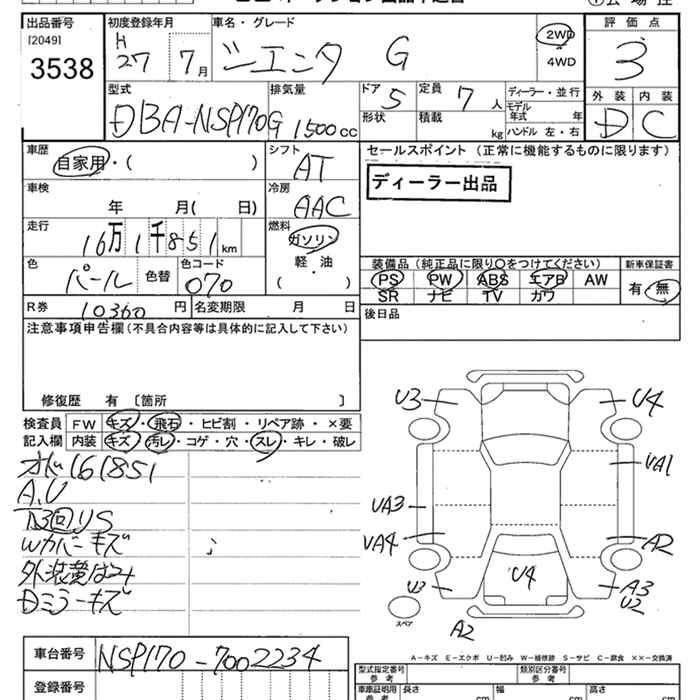 出品番号 [2049] 3538
初度登録年月 H27 7月
車名・グレード シエンタ G
2WD 4WD
評価点 3
外装 D 内装 C
型式 DBA-NSP170G
排気量 1500cc
ドア 5 形状
定員 7人 積載 kg
ディーラー・並行
モデル年式 年
ハンドル 左・右
車歴 自家用・( )
シフト AT
セールスポイント (正常に機能するものに限ります)
ディーラー出品
車検 年 月( 日)
冷房 AAC
走行 16万1千851km
燃料 ガソリン 軽・油 ( )
色 パール 色替 色コード 070
装備品 (純正品に限り〇をつけてください)
PS PW ABS エアB AW
SR ナビ TV カワ
新車保証書 有・無
R券 10360円 名変期限 月 日
後日品
注意事項申告欄(不具合内容等は具体的に記入して下さい)
修復歴 有 [箇所 ]
検査員記入欄
FW キズ・飛石・ヒビ割・リペア跡・×要
内装 キズ・汚レ・コゲ・穴・スレ・キレ・破レ
161851
A.U
Wカバーキズ
Dミラーキズ
U3 U4
VA1
VA3
VA4 A2
U3 U4 A3 U2
スペア A2
A-キズ E-エクボ U-凹み W-補修跡 S-サビ C-腐食 ××-交換済
車台番号 NSP170-7002234
登録番号
型式指定番号 参考
類別区分番号 参考
車庫証明用 参考 長さ cm 幅 cm 高さ cm